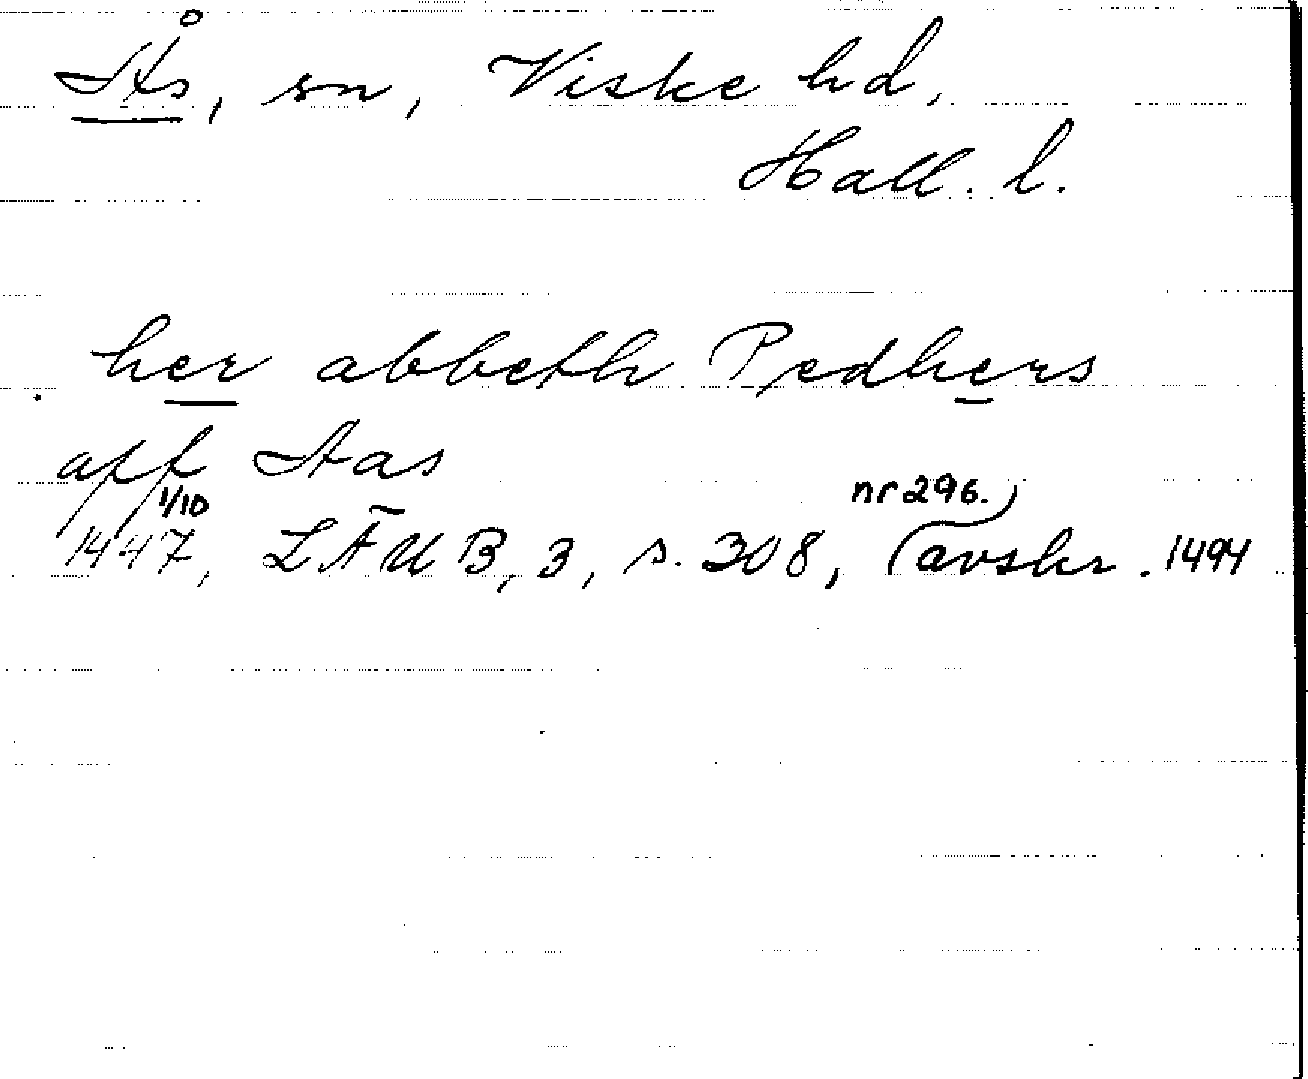 Ås, sn, Viske hd,
Hall. l.
her abbeth Pedhers
aff Aas
1/10 nr 296.)
1447, LÄUB, 3, s. 308, (avskr. 1494